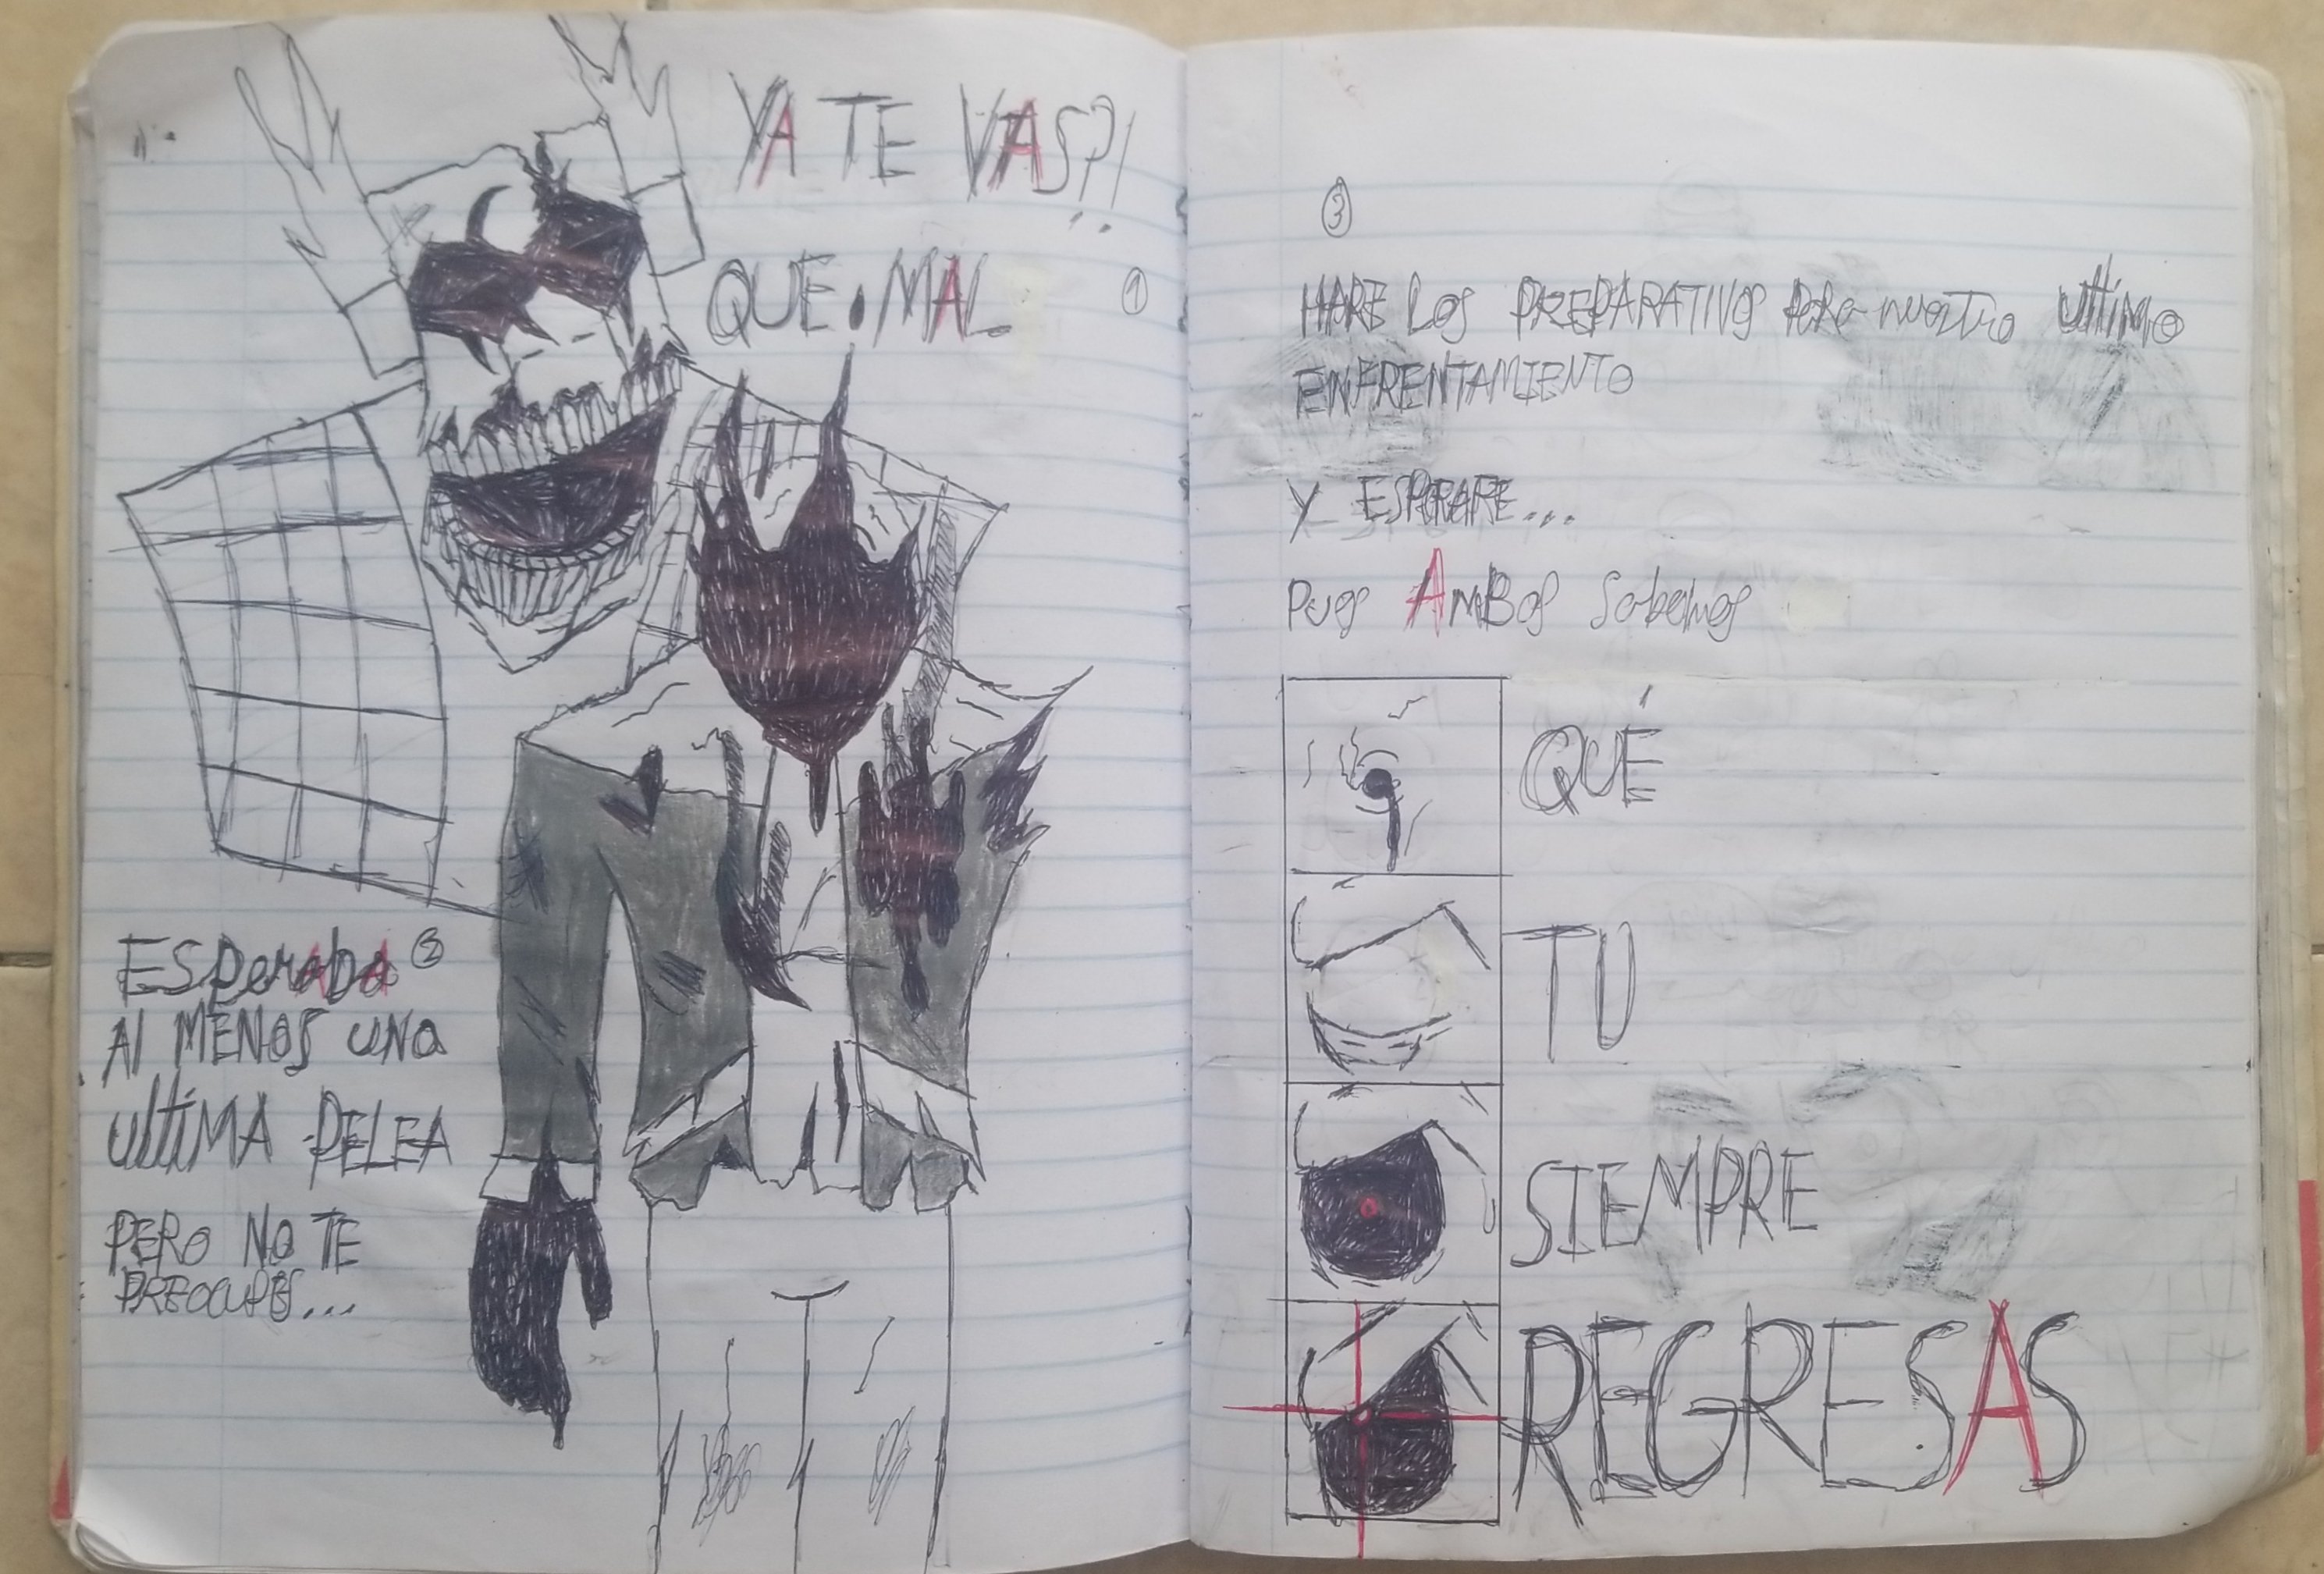 YA TE VAS?!
QUE. MAL
1
ESperaba 2
Al MENOS UNa
UltiMA PELEA
PERO NO TE
PREOCUPES...
3
HARE LOS PREPARATIVOS PARa nuestro Ultimo
ENFRENTAMIENTO
Y ESPERARE...
PUES AmBos Sabemos
QUÉ
TU
SIEMPRE
REGRESAS